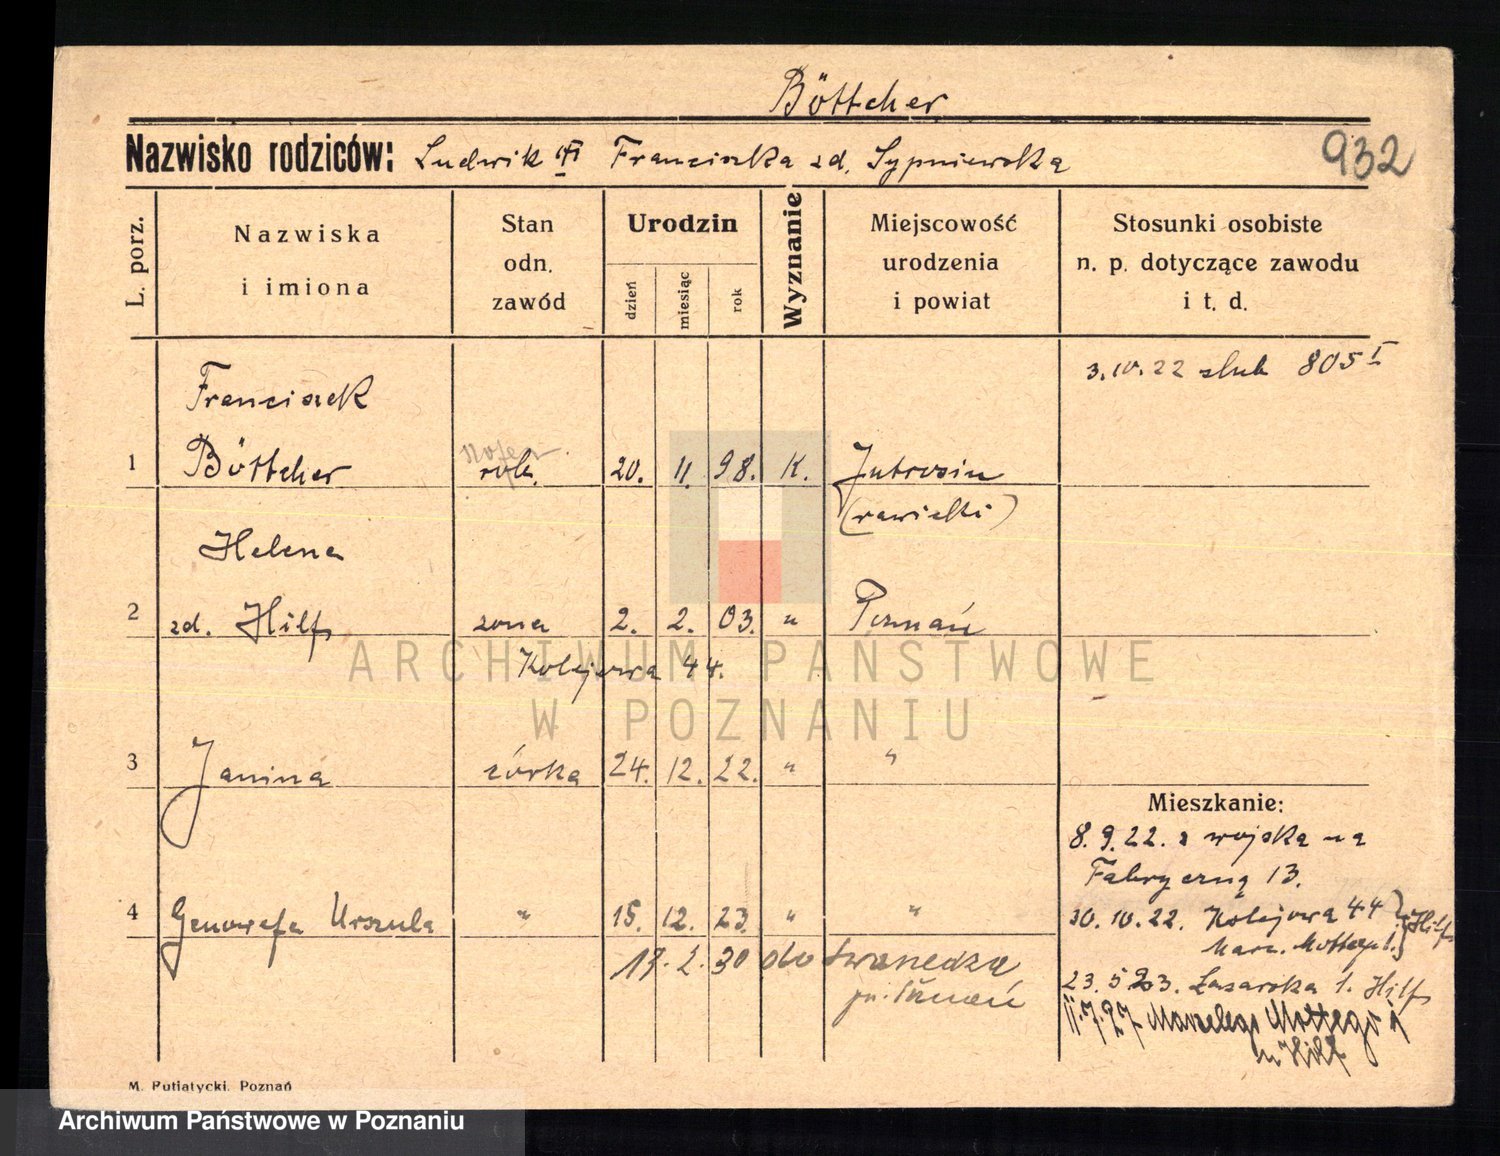 Böttcher
Nazwisko rodziców: Ludwik Franciszka zd. Sypniewska
932
L. porz.
Nazwiska
i imiona
Stan
odn.
zawód
Urodzin
dzień
miesiąc
rok
Wyznanie
Miejscowość
urodzenia
i powiat
Stosunki osobiste
n. p. dotyczące zawodu
i t. d.
3.10.22 slub 805 I
Franciszek
1 Böttcher rob. 20. 11. 98. K. Jutrosin
(rawicki)
Helena
2 zd. Hilf zona 2. 2. 03. " Poznań
Kolejowa 44.
3 Janina córka 24. 12. 22. " "
Mieszkanie:
8.9.22. z wojska na
Fabryczną 13.
4 Genowefa Urszula " 15. 12. 23. " "
30.10.22. Kolejowa 44 Hilf
Marc. Mottego 1.
17. 2. 30 do Swarzędza
pw. Poznań
23.5.23. Łazarska 1. Hilf
11.7.27 Marcelego Mottego 1
u Hilf
M. Putiatycki. Poznań
ARCHIWUM PAŃSTWOWE
W POZNANIU
Archiwum Państwowe w Poznaniu